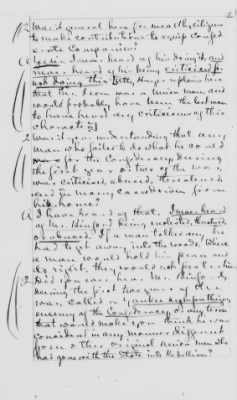 Q Was it general here for wealthy citizens
to make contributions to equip Confed-
erate Companies?
A Yes sir. I never heard of his doing it, and
never heard of his being criticised for
not doing this. Petty Hays explained
that the deem was a Union man and
would probably have been the last man
to have heard any criticisms of this
character.
Q Was it your understanding that any
man who failed to do what he could
for the Confederacy during
the first year or two of the war,
was criticised, abused, threatened
and in many cases driven from
his home?
A I have heard of that. I never heard
of Mr. being molested,
or abused. If a man talked any, he
had to get away into the woods. Where
a man would hold his peace and
do right, they would not pester him.
Q Did you ever hear Mr.
during the first two years of the
war, called a Yankee sympathizer,
enemy of the Confederacy or any term
that would make you think he was
considered in any manner different
from other original Union men who
had gone with the State into Rebellion?